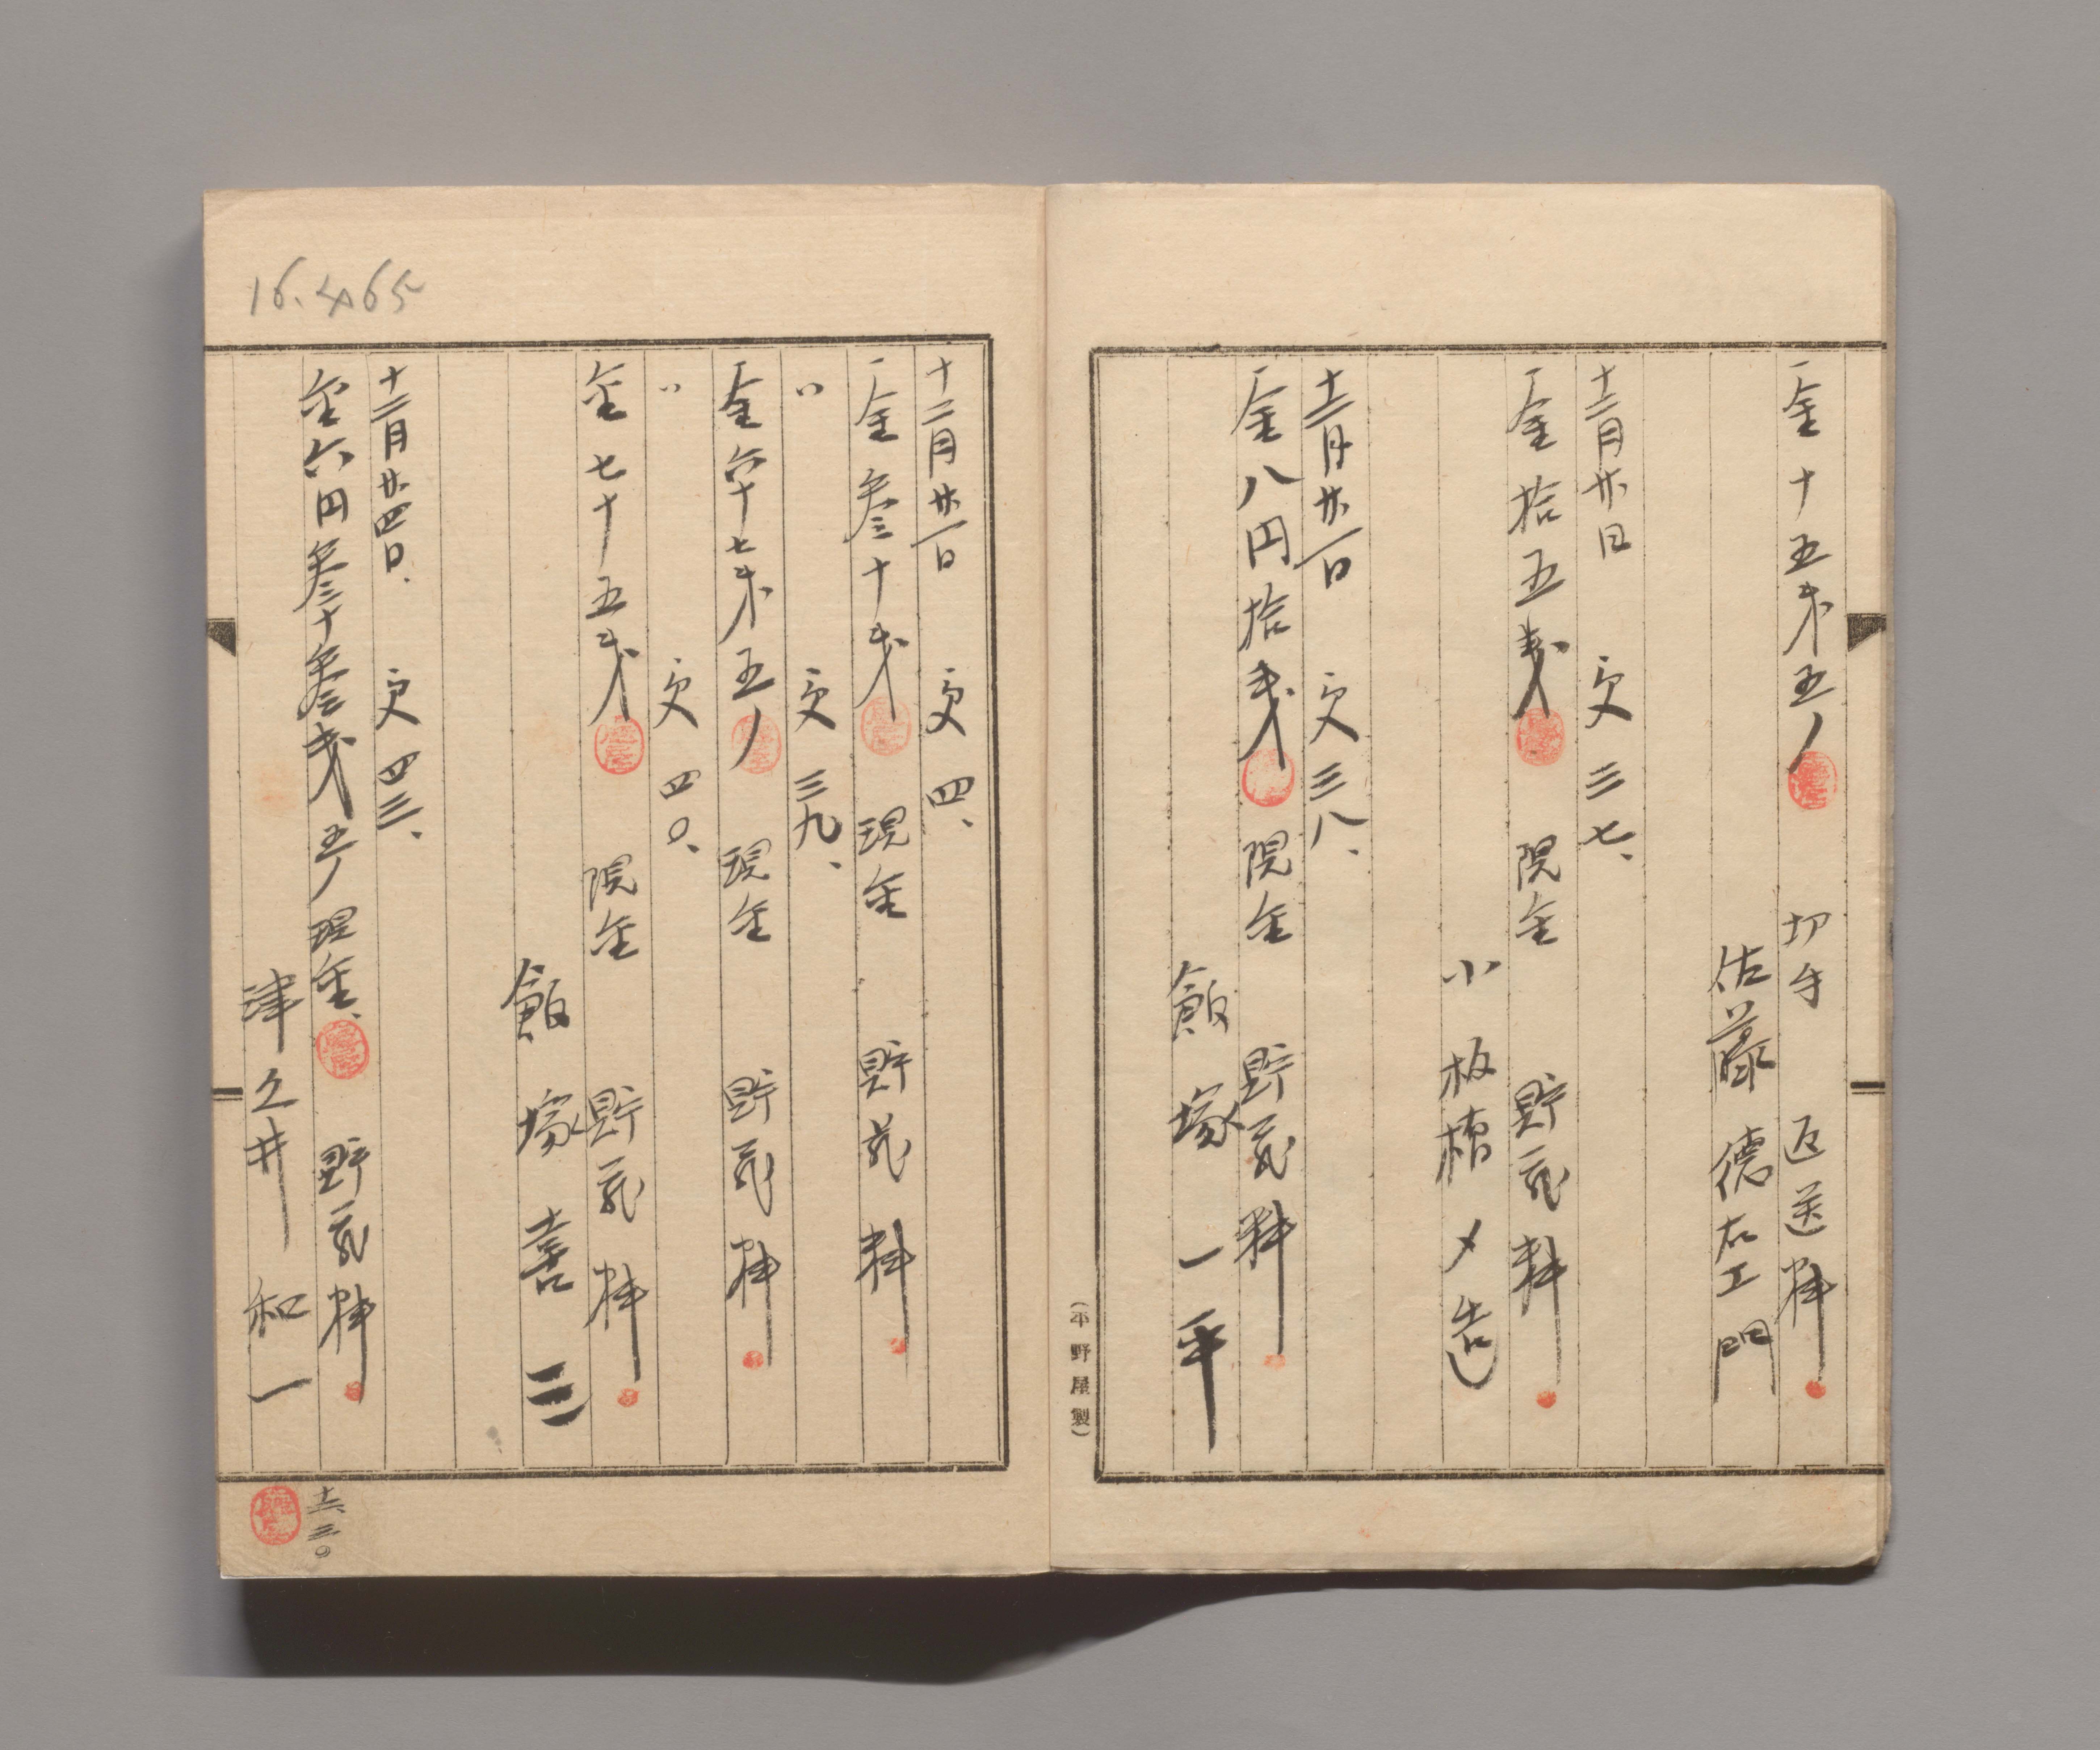 一金十五銭五厘 切手 返送料
佐藤徳右エ門
十二月廿日 交三七、
一金拾五銭 現金 貯蔵料
小板橋〆造
十二月廿一日 交三八、
一金八円拾銭 現金 貯蔵料
飯塚一平
(平野屋製)
十二月廿一日 交四、
一金参十銭 現金 貯蔵料
〃 交三九、
一金六十七銭五厘 現金 貯蔵料
〃 交四〇、
金七十五銭 現金 貯蔵料
飯塚喜三
十二月廿四日、 交四三、
金六円参十参銭五厘 現金、 貯蔵料
津久井和一
16.465